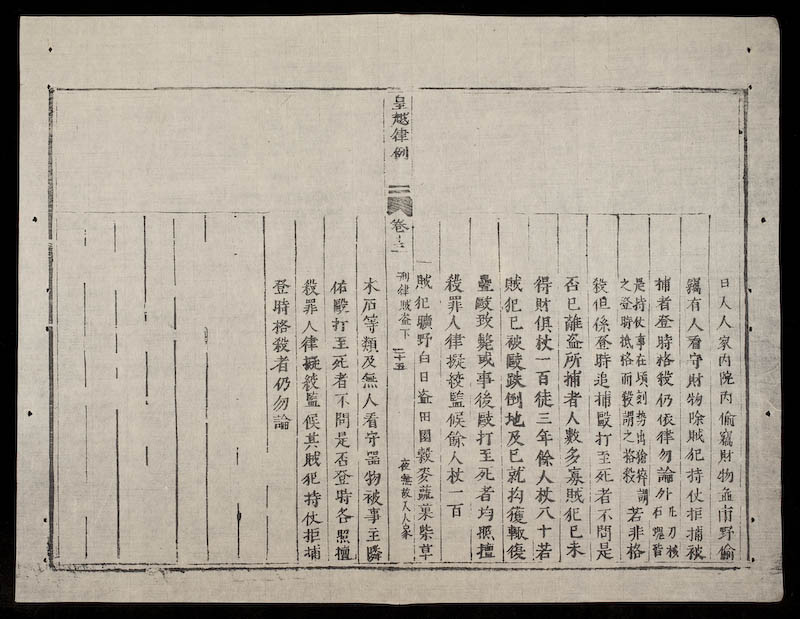 日入人家內院內偷竊財物並市野偷
竊有人看守財物除賊犯持仗拒捕被
捕者登時格殺仍依律勿論外凡刀械石塊皆
是持仗事在頃刻勢出倉猝謂之登時抵格而殺謂之格殺若非格
殺但係登時追捕毆打至死者不問是
否已離盜所捕者人數多寡賊犯已未
得財俱杖一百徒三年餘人杖八十若
賊犯已被毆跌倒地及已就拘獲輒復
疊毆致斃或事後毆打至死者均照擅
殺罪人律擬絞監候餘人杖一百
一賊犯曠野白日盜田園穀麥蔬菓柴草
皇越律例
卷十三
刑律賊盜下
二十五
夜無故入人家
木石等類及無人看守器物被事主隣
佑毆打至死者不問是否登時各照擅
殺罪人律擬絞監候其賊犯持仗拒捕
登時格殺者仍勿論